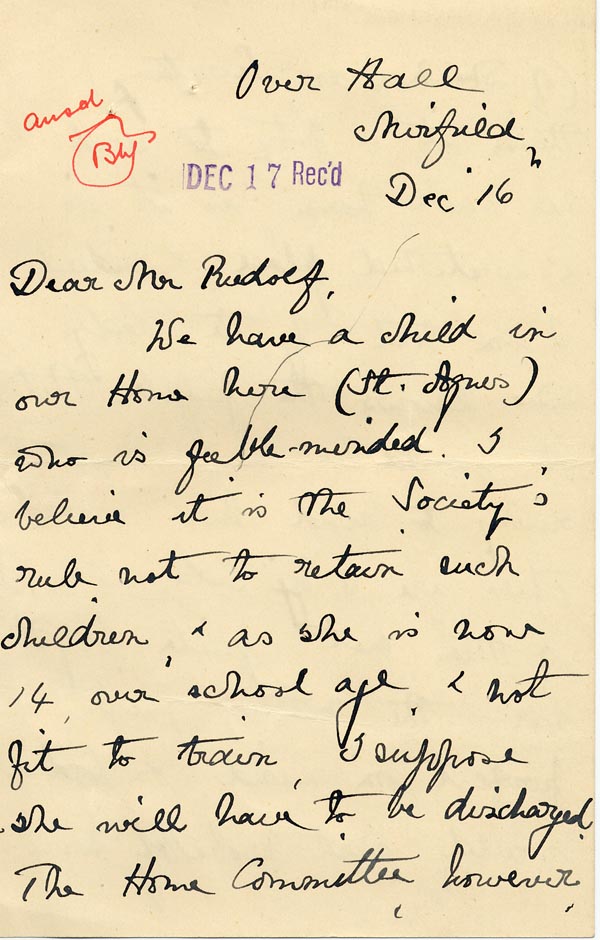 Over Hall
Mirfield
Dec 16th
ansd
DEC 17 Rec'd
Dear Mr Rudolf,
We have a child in
our Home here (St. Agnes)
who is feeble-minded. I
believe it is the Society's
rule not to retain such
children, & as she is now
14, over school age, & not
fit to train, I suppose
she will have to be discharged.
The Home Committee, however,